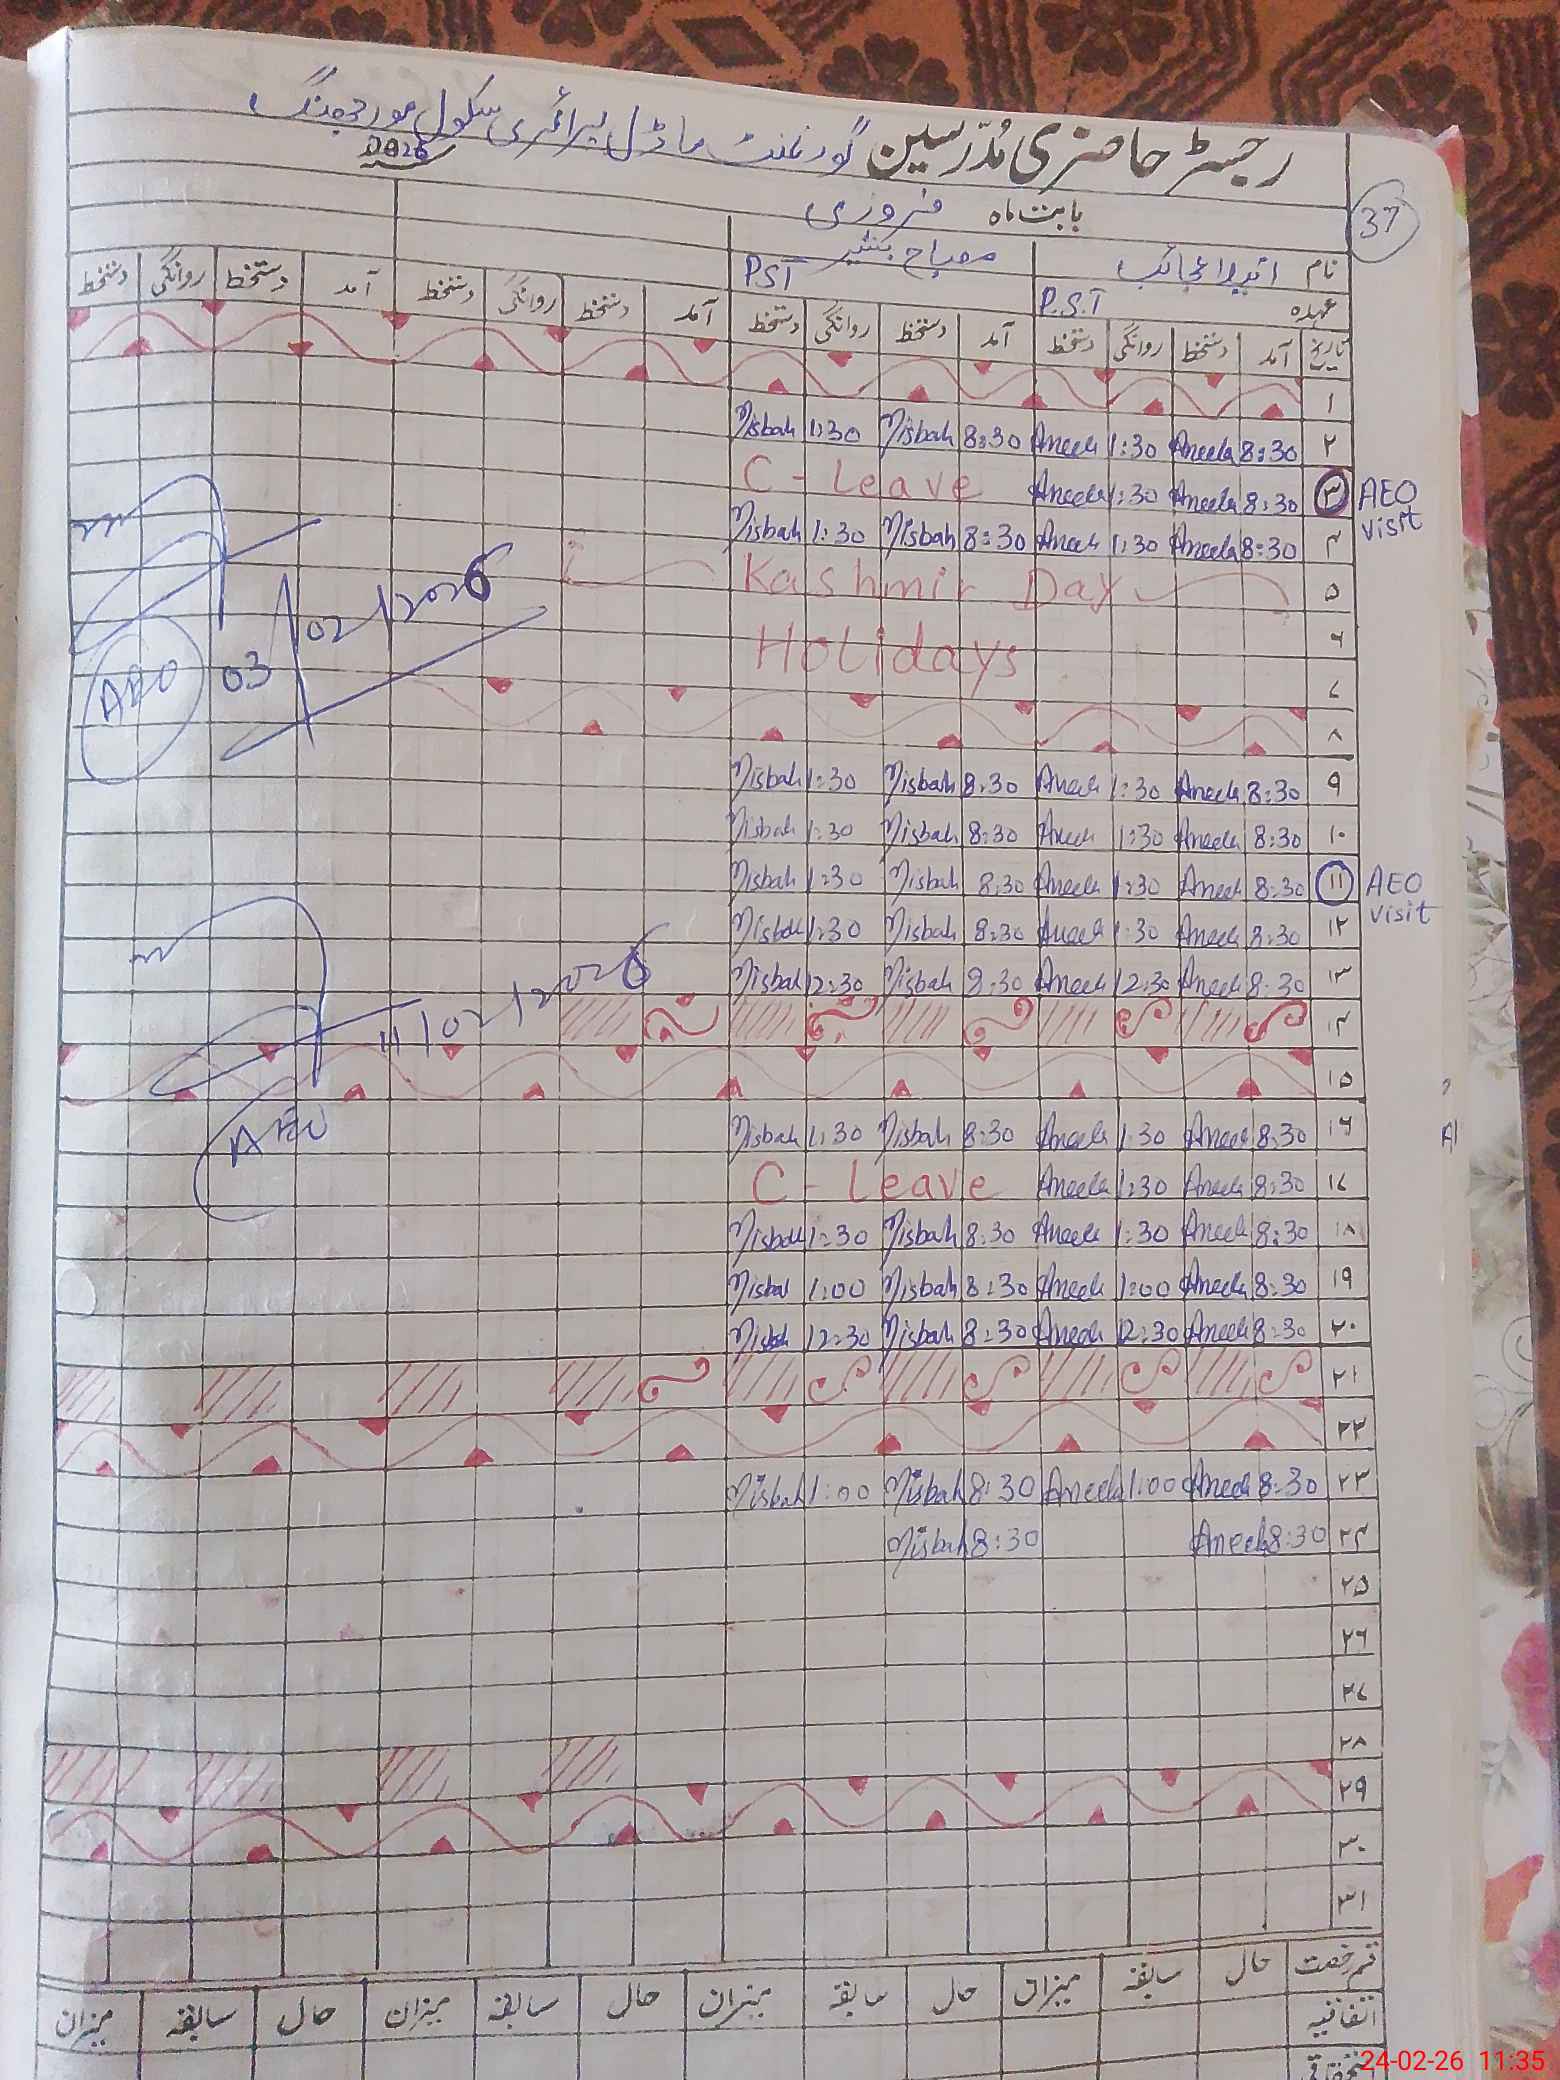 رجسٹر حاضری مُدّرسین گورنمنٹ ماڈل پرائمری سکول
2026
بابت ماہ فروری
37
نام انیلا عجائب مصباح بشیر
عہدہ P.S.T PST
تاریخ آمد دستخط روانگی دستخط آمد دستخط روانگی دستخط آمد دستخط روانگی دستخط آمد دستخط روانگی دستخط
۱
۲ 8:30 Aneela 1:30 Aneela 8:30 Misbah 1:30 Misbah
۳ 8:30 Aneela 1:30 Aneela C - Leave AEO visit
۴ 8:30 Aneela 1:30 Aneela 8:30 Misbah 1:30 Misbah
۵ Kashmir Day
۶ Holidays
۷
۸
AEO 03/02/2026
۹ 8:30 Aneela 1:30 Aneela 8:30 Misbah 1:30 Misbah
۱۰ 8:30 Aneela 1:30 Aneela 8:30 Misbah 1:30 Misbah
۱۱ 8:30 Aneela 1:30 Aneela 8:30 Misbah 1:30 Misbah AEO visit
۱۲ 8:30 Aneela 1:30 Aneela 8:30 Misbah 1:30 Misbah
۱۳ 8:30 Aneela 12:30 Aneela 8:30 Misbah 12:30 Misbah
۱۴
11/02/2026
۱۵
AEO
۱۶ 8:30 Aneela 1:30 Aneela 8:30 Misbah 1:30 Misbah
۱۷ 8:30 Aneela 1:30 Aneela C - Leave
۱۸ 8:30 Aneela 1:30 Aneela 8:30 Misbah 1:30 Misbah
۱۹ 8:30 Aneela 1:00 Aneela 8:30 Misbah 1:00 Misbah
۲۰ 8:30 Aneela 12:30 Aneela 8:30 Misbah 12:30 Misbah
۲۱
۲۲
۲۳ 8:30 Aneela 1:00 Aneela 8:30 Misbah 1:00 Misbah
۲۴ 8:30 Aneela 8:30 Misbah
۲۵
۲۶
۲۷
۲۸
۲۹
۳۰
۳۱
قسم رخصت حال سابقہ میزان حال سابقہ میزان حال سابقہ میزان حال سابقہ میزان
اتفاقیہ
24-02-26 11:35